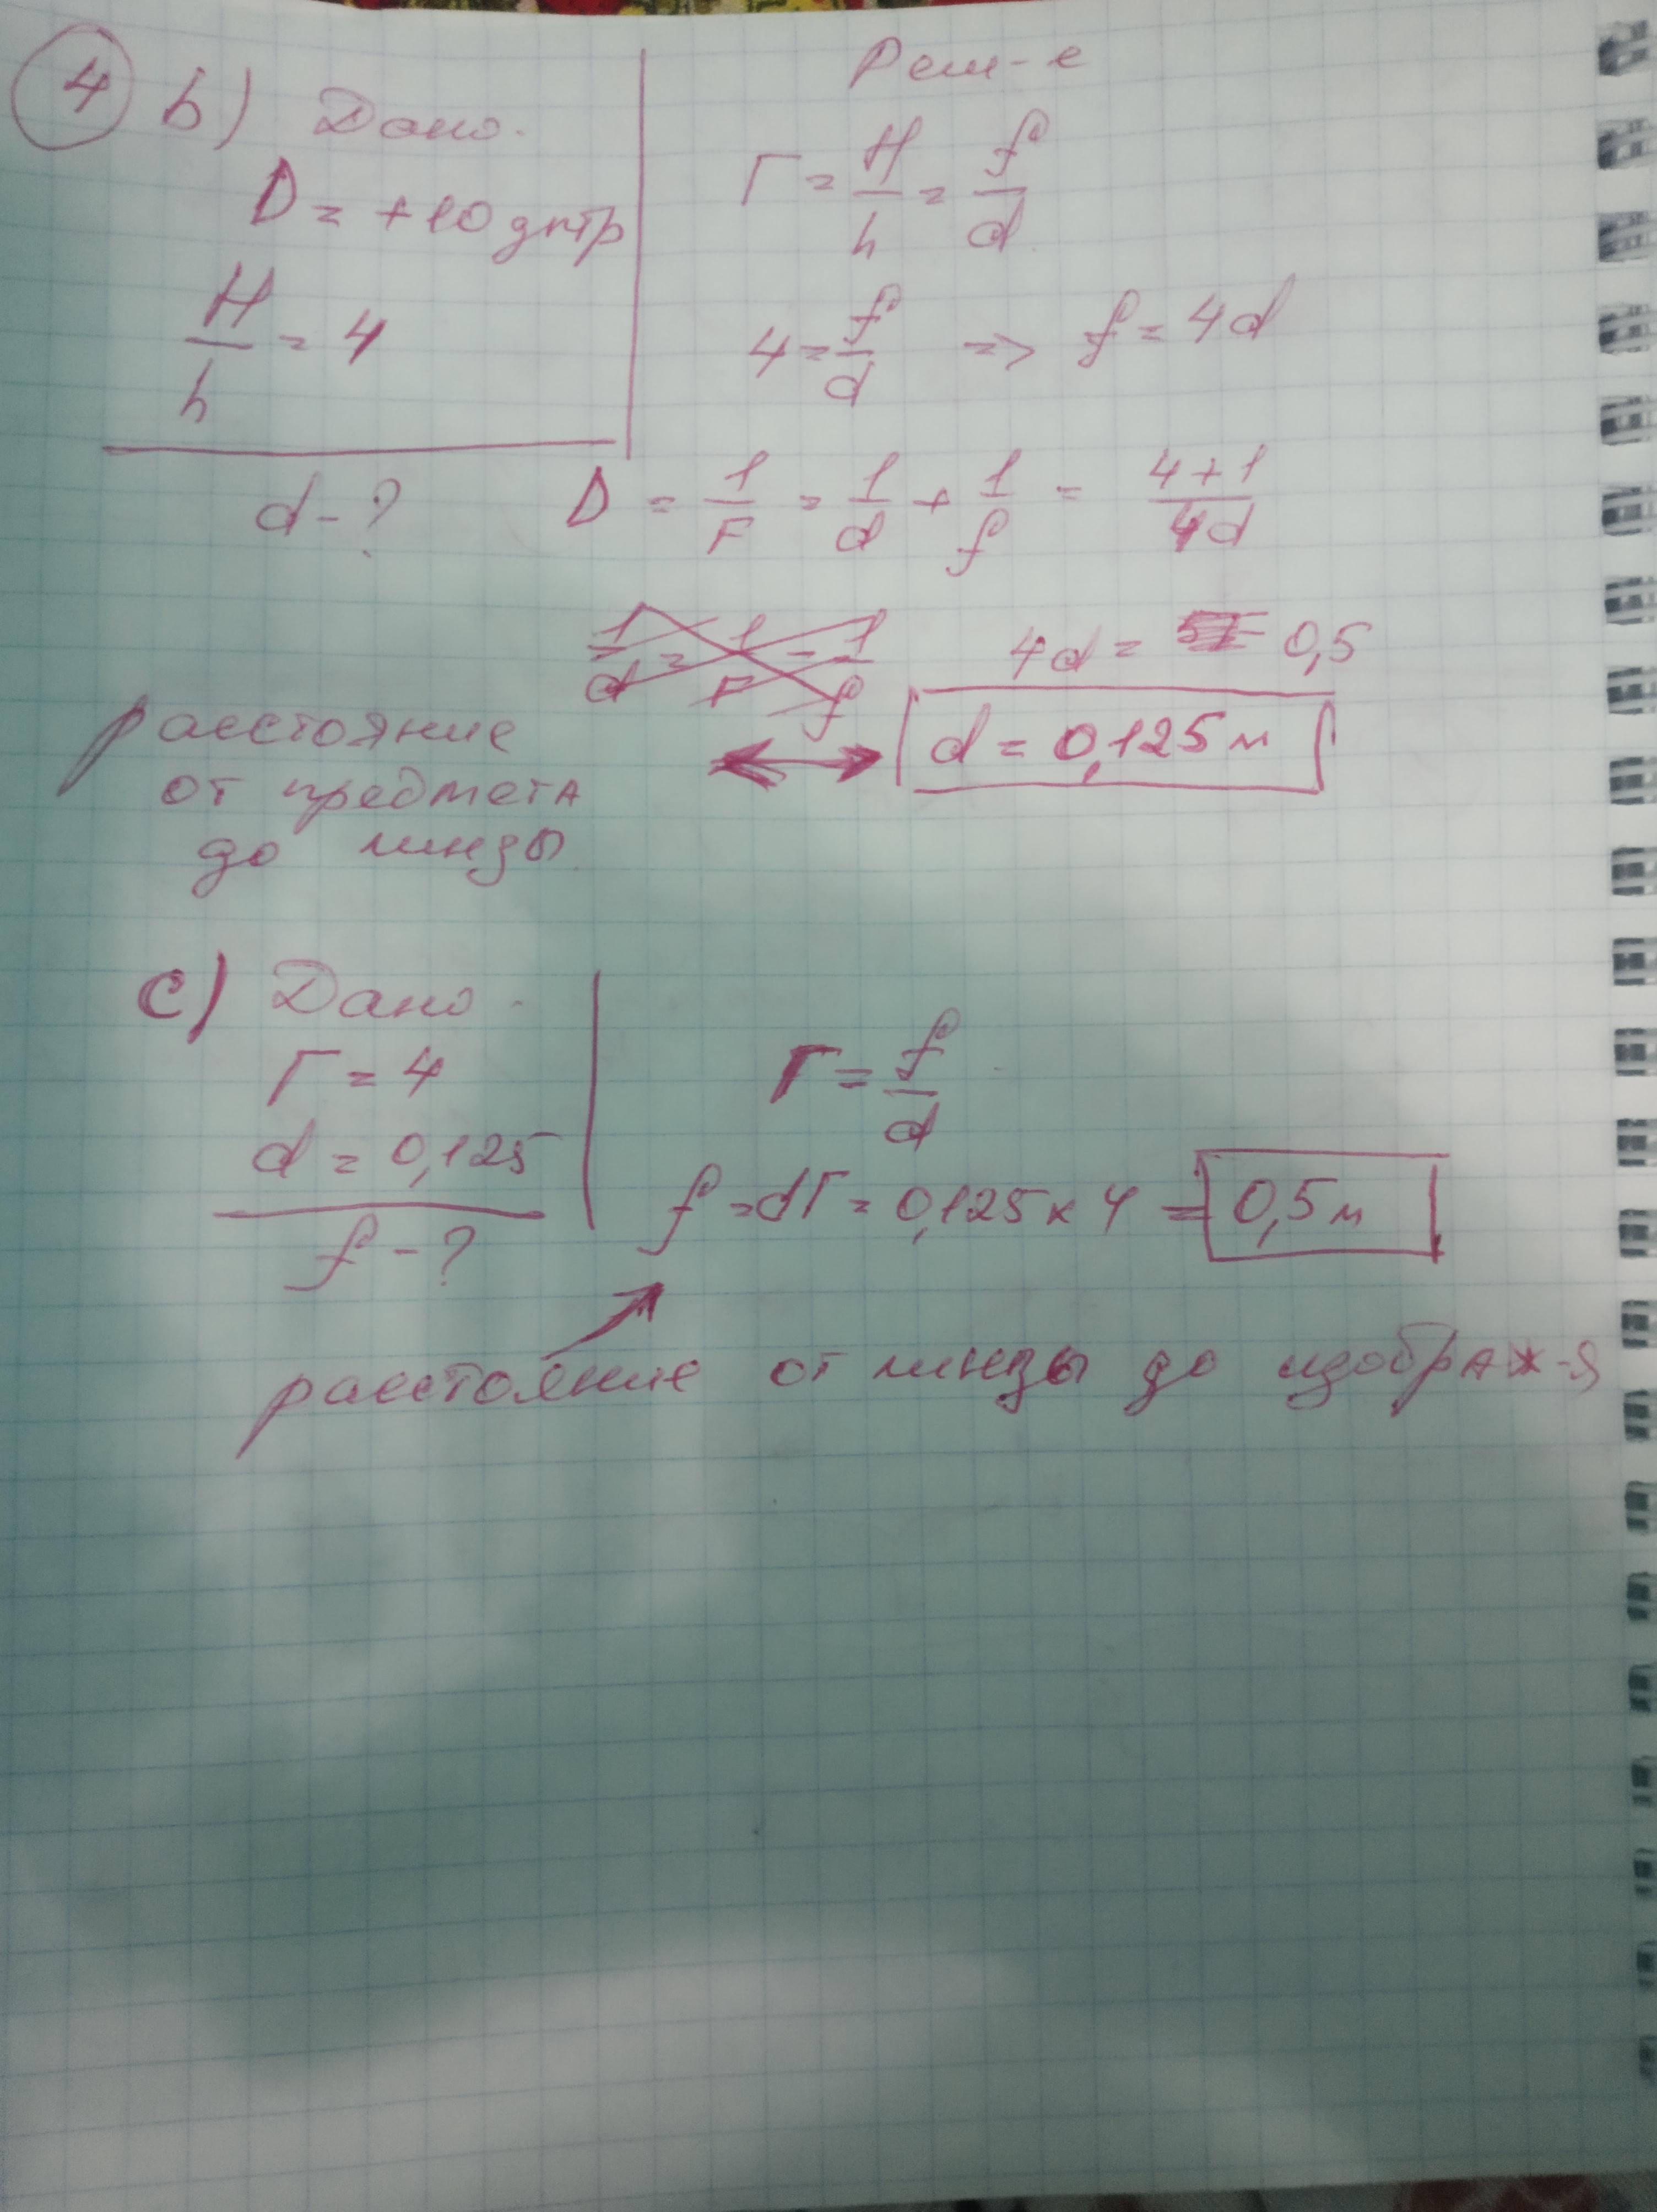 4 b) Дано.
D = +10 дптр
H/h = 4
d - ?
Реш-е
Г = H/h = f/d
4 = f/d => f = 4d
D = 1/F = 1/d + 1/f = (4+1)/4d
1/d = 1/F - 1/f
4d = 0,5
d = 0,125 м
расстояние
от предмета
до линзы
c) Дано
Г = 4
d = 0,125
f - ?
Г = f/d
f = dГ = 0,125 x 4 = 0,5 м
расстояние от линзы до изображ-я